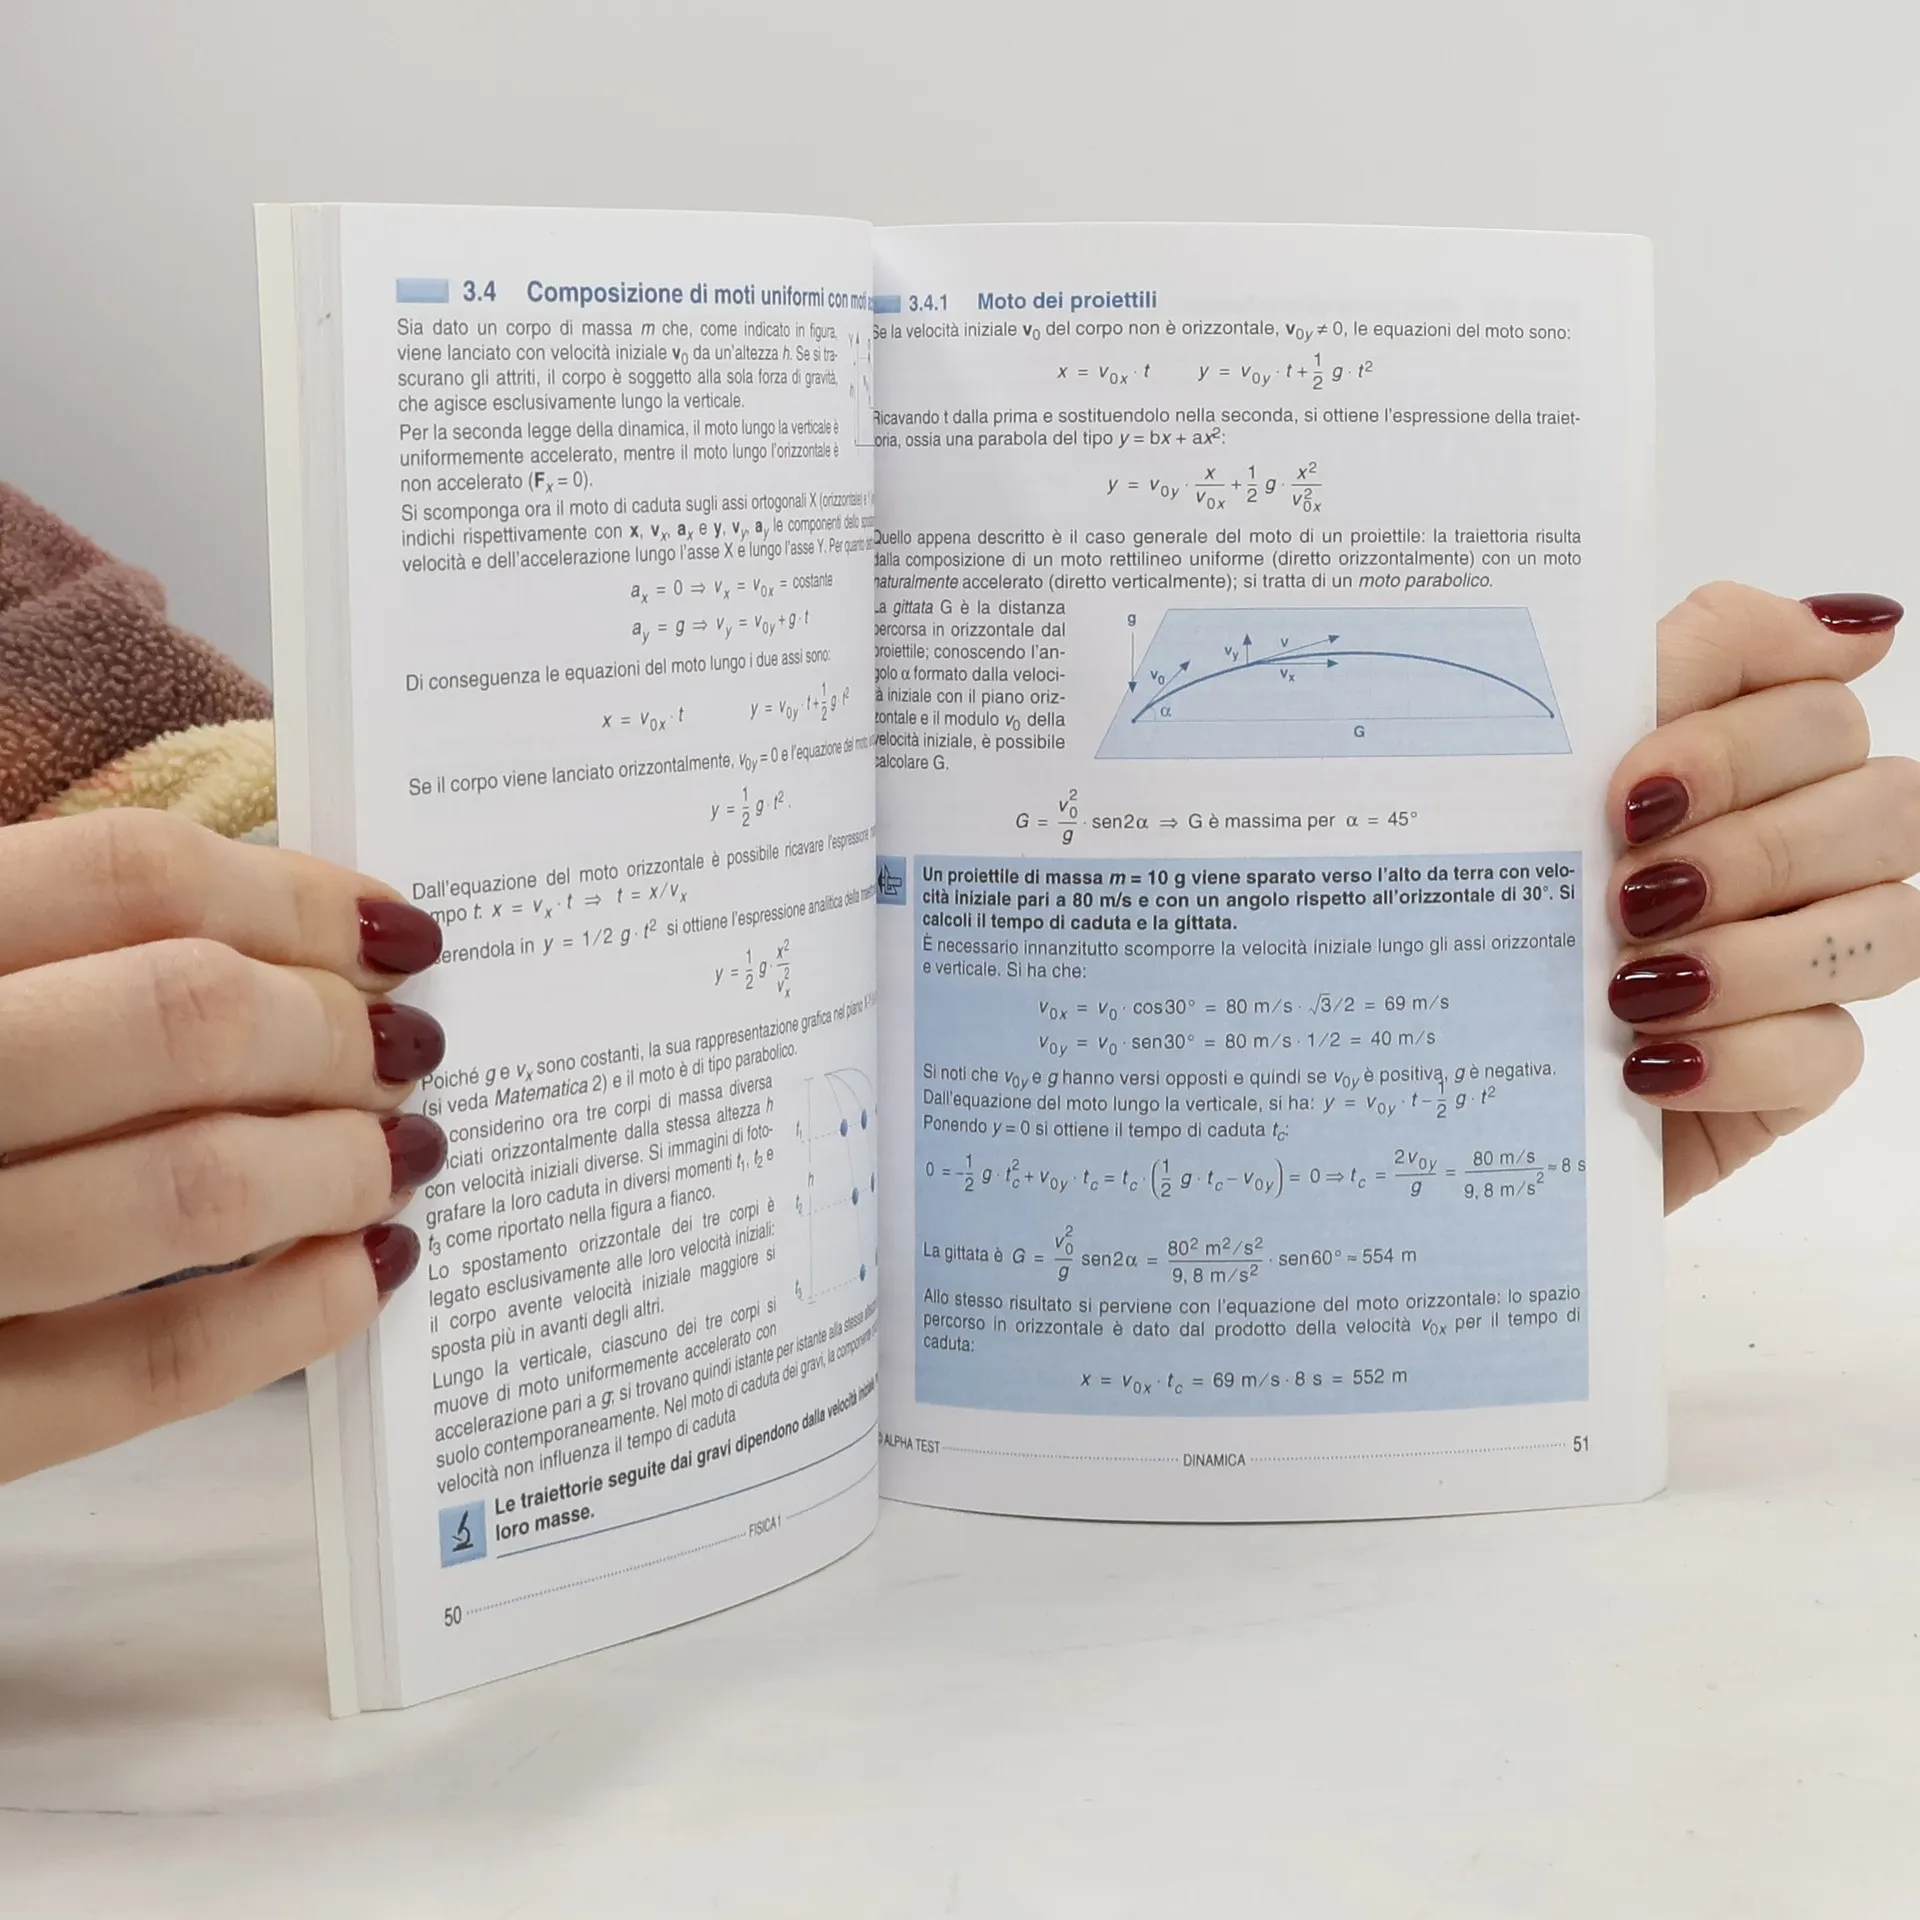 3.4 Composizione di moti uniformi con moti
Sia dato un corpo di massa m che, come indicato in figura,
viene lanciato con velocità iniziale v₀ da un'altezza h. Se si tra-
scurano gli attriti, il corpo è soggetto alla sola forza di gravità,
che agisce esclusivamente lungo la verticale.
Per la seconda legge della dinamica, il moto lungo la verticale è
uniformemente accelerato, mentre il moto lungo l'orizzontale è
non accelerato (Fₓ = 0).
Si scomponga ora il moto di caduta sugli assi ortogonali X (orizzontale) e
indichi rispettivamente con x, vₓ, aₓ e y, v_y, a_y le componenti dello
velocità e dell'accelerazione lungo l'asse X e lungo l'asse Y. Per quanto
aₓ = 0 ⇒ vₓ = v₀ₓ = costante
a_y = g ⇒ v_y = v₀y + g · t
Di conseguenza le equazioni del moto lungo i due assi sono:
x = v₀ₓ · t y = v₀y · t + 1/2 g · t²
Se il corpo viene lanciato orizzontalmente, v₀y = 0 e l'equazione del moto
y = 1/2 g · t².
Dall'equazione del moto orizzontale è possibile ricavare l'espressione
mpo t: x = vₓ · t ⇒ t = x/vₓ
erendola in y = 1/2 g · t² si ottiene l'espressione analitica della
y = 1/2 g · x²/vₓ²
Poiché g e vₓ sono costanti, la sua rappresentazione grafica nel piano
(si veda Matematica 2) e il moto è di tipo parabolico.
considerino ora tre corpi di massa diversa
nciati orizzontalmente dalla stessa altezza h
con velocità iniziali diverse. Si immagini di foto-
grafare la loro caduta in diversi momenti t₁, t₂ e
t₃ come riportato nella figura a fianco.
Lo spostamento orizzontale dei tre corpi è
legato esclusivamente alle loro velocità iniziali:
il corpo avente velocità iniziale maggiore si
sposta più in avanti degli altri.
Lungo la verticale, ciascuno dei tre corpi si
muove di moto uniformemente accelerato con
accelerazione pari a g; si trovano quindi istante per istante alla stessa
suolo contemporaneamente. Nel moto di caduta dei gravi, la componente
velocità non influenza il tempo di caduta
t₁
h
t₂
t₃
Le traiettorie seguite dai gravi dipendono dalla velocità iniziale
loro masse.
FISICA 1
50
3.4.1 Moto dei proiettili
Se la velocità iniziale v₀ del corpo non è orizzontale, v₀y ≠ 0, le equazioni del moto sono:
x = v₀ₓ · t y = v₀y · t + 1/2 g · t²
Ricavando t dalla prima e sostituendolo nella seconda, si ottiene l'espressione della traiet-
toria, ossia una parabola del tipo y = bx + ax²:
y = v₀y · x/v₀ₓ + 1/2 g · x²/v₀ₓ²
Quello appena descritto è il caso generale del moto di un proiettile: la traiettoria risulta
dalla composizione di un moto rettilineo uniforme (diretto orizzontalmente) con un moto
naturalmente accelerato (diretto verticalmente); si tratta di un moto parabolico.
La gittata G è la distanza
percorsa in orizzontale dal
proiettile; conoscendo l'an-
golo α formato dalla veloci-
tà iniziale con il piano oriz-
zontale e il modulo v₀ della
velocità iniziale, è possibile
calcolare G.
g
v₀
α
v_y
v
vₓ
G
G = v₀²/g · sen2α ⇒ G è massima per α = 45°
Un proiettile di massa m = 10 g viene sparato verso l'alto da terra con velo-
cità iniziale pari a 80 m/s e con un angolo rispetto all'orizzontale di 30°. Si
calcoli il tempo di caduta e la gittata.
È necessario innanzitutto scomporre la velocità iniziale lungo gli assi orizzontale
e verticale. Si ha che:
v₀ₓ = v₀ · cos30° = 80 m/s · √3/2 = 69 m/s
v₀y = v₀ · sen30° = 80 m/s · 1/2 = 40 m/s
Si noti che v₀y e g hanno versi opposti e quindi se v₀y è positiva, g è negativa.
Dall'equazione del moto lungo la verticale, si ha: y = v₀y · t − 1/2 g · t²
Ponendo y = 0 si ottiene il tempo di caduta t_c:
0 = −1/2 g · t_c² + v₀y · t_c = t_c · (1/2 g · t_c − v₀y) = 0 ⇒ t_c = 2v₀y/g = 80 m/s / 9,8 m/s² ≈ 8 s
La gittata è G = v₀²/g sen2α = 80² m²/s² / 9,8 m/s² · sen60° ≈ 554 m
Allo stesso risultato si perviene con l'equazione del moto orizzontale: lo spazio
percorso in orizzontale è dato dal prodotto della velocità v₀ₓ per il tempo di
caduta:
x = v₀ₓ · t_c = 69 m/s · 8 s = 552 m
© ALPHA TEST
DINAMICA
51